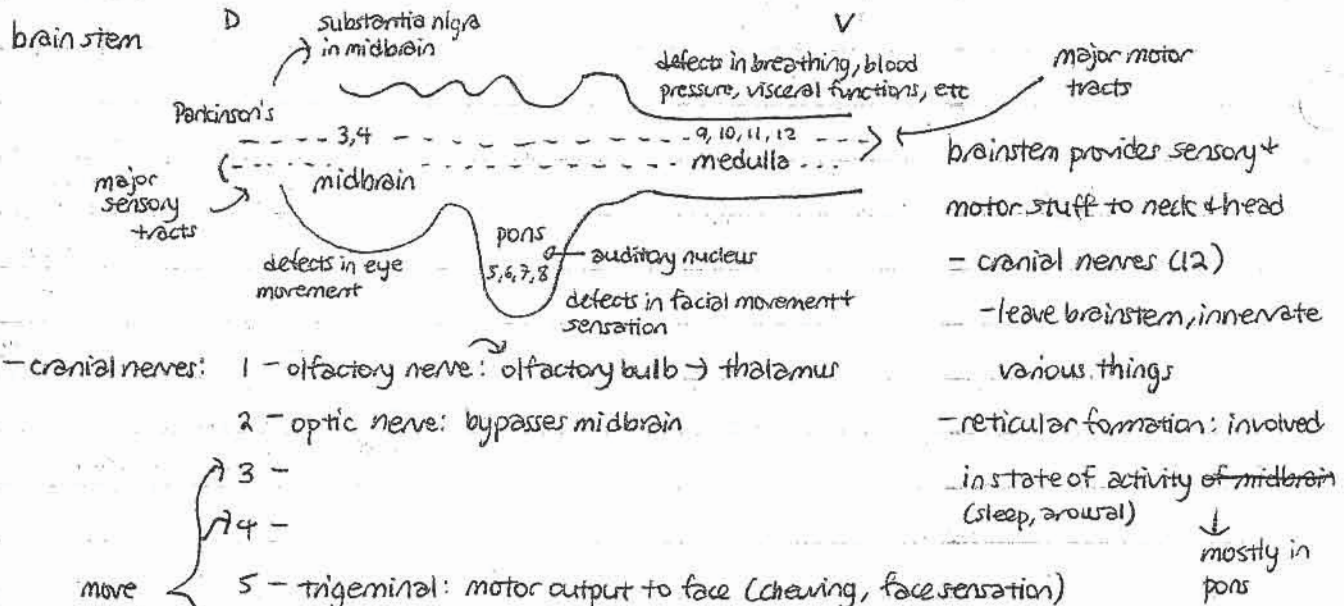 brain stem
D
substantia nigra
in midbrain
V
defects in breathing, blood
pressure, visceral functions, etc
major motor
tracts
Parkinson's
3,4
9, 10, 11, 12
medulla
midbrain
major
sensory
tracts
pons
5,6,7,8
auditory nucleus
defects in eye
movement
defects in facial movement +
sensation
brainstem provides sensory +
motor stuff to neck + head
- cranial nerves (12)
- leave brainstem, innervate
various things
- reticular formation: involved
in state of activity of midbrain
(sleep, arousal)
mostly in
pons
- cranial nerves: 1 - olfactory nerve: olfactory bulb → thalamus
2 - optic nerve: bypasses midbrain
3 -
4 -
move
5 - trigeminal: motor output to face (chewing, face sensation)